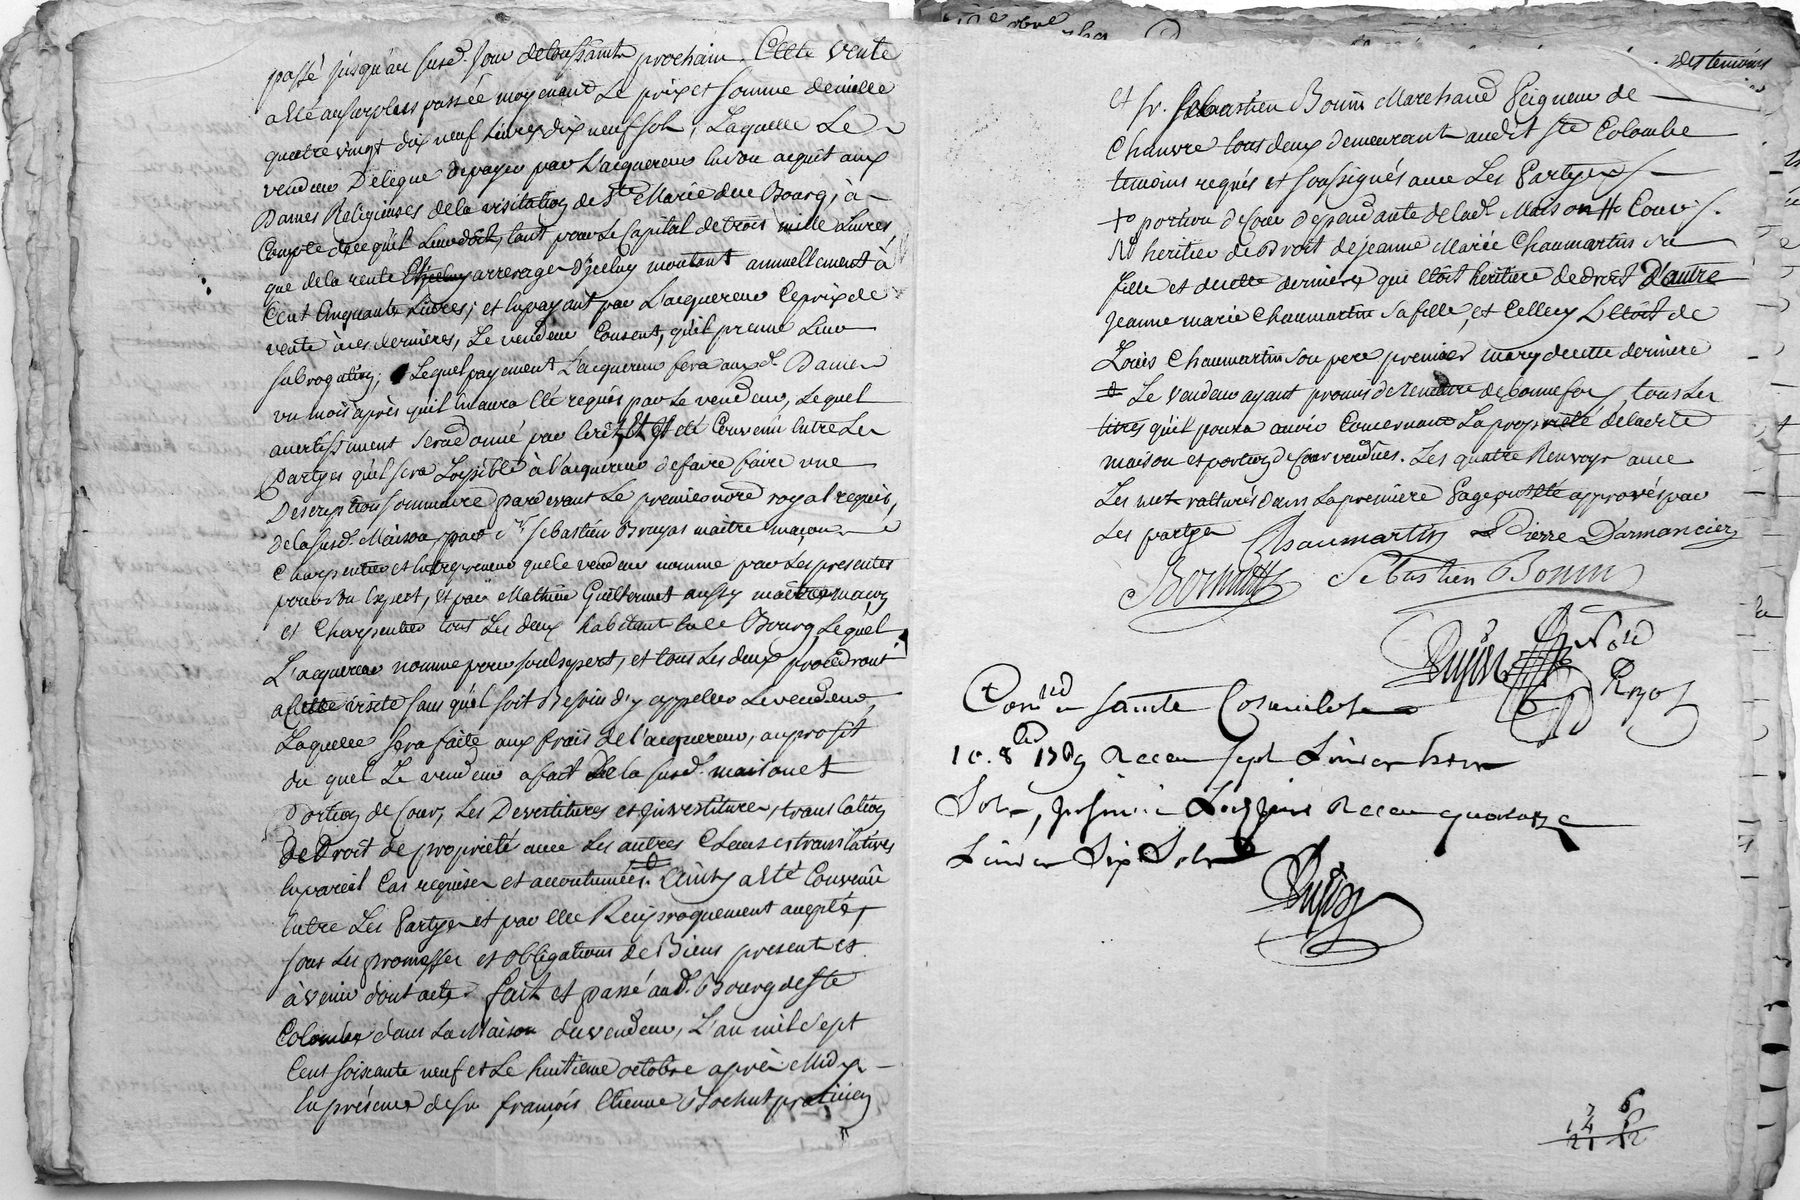 passé jusqu'au susd. jour de toussaints prochain. Cette vente
a eté au surplus passée moyenant Le prix et somme de mille
quatre vingt dix neuf Livres dix neuf sols, Laquelle Le
vendeur Délégue de payer par L'acquereur en son acquit aux
Dames Religieuses de la visitation de Ste Marie du Bourg, à
Compte de ce qu'il leur doit, tant pour Le Capital de trois mille Livres
que de la rente arrerages D'jceluy montant annuellement à
Cent Cinquante Livres; et en payant par L'acquereur Ce prix de
vente à ces dernieres, Le vendeur Consent, qu'il prenne Leur
subrogation; Lequel payement L'acquereur fera auxd. Dames
un mois après qu'il en aura eté requis par Le vendeur, Lequel
avertissement sera donné par écrit, Et Il est Convenu Entre Les
Partyes qu'il sera Loysible à L'acquereur de faire faire une
Description sommaire pardevant Le premier nore royal requis,
de la susd. Maison par sr. sebastien Bruyas maitre maçon
Charpentier et Entrepreneur que le vendeur nomme par Les presentes
pour son Expert, Et par Mathieu Guillermet aussy maitre maçon
et Charpentier tous Les deux habitant En ce Bourg Lequel
L'acquereur nomme pour son Expert, et tous Les deux procedront
a Cette visite sans qu'il soit Besoin d'y appeller Le vendeur,
Laquelle sera faite aux frais de L'acquereur, au profit
du quel Le vendeur a fait de la susd. maison et
Portion de Cour, Les Devestitures et Jnvestitures, translation
de Droit de proprieté avec Les autres Clauses translatives
En pareil Cas requises et accoutumées. Ainsy a eté Convenu
Entre Les Partyes et par elles Reciproquement accepté,
sous Les promesses et obligations de Biens presents et
à venir dont acte. fait et passé aud. Bourg de Ste
Colombe dans La Maison du vendeur, L'an mil sept
Cent soixante neuf et Le huitieme octobre après Midy
En présence de sr françois Etienne Bochut praticien
des temoins
et sr. sebastien Bonin Marchand Peigneur de
Chanvre tous deux demeurant audit Ste Colombe
temoins requis et soussignés avec Les Partyes
+o portion de Cour dependante de lad. Maison #o Couvs.
No heritier de Droit de jeanne Marie Chaumartin sa
fille et decette derniere qui etoit heritiere de droit D'autre
jeanne marie Chaumartin sa fille, et Celle cy L'etoit de
Louis Chaumartin son pere premier mary decette derniere
Le vendeur ayant promis de remettre de bonne foy tous Les
titres qu'il pourra avoir Concernant La proprieté de ladite
maison et portion de Cour vendues. Les quatre Renvoys avec
Les mots raturés dans La premiere Page ont été approvés par
Les partyes Chaumartin Pierre Darmancier
Bochutt Sebastien Bonin
Dujon
Nore
Royal
Con.lé a sainte Colombe Le
10. 8bre 1769 Receu sept Livres
Sols, Receu quatorze
Livres Six Sols
Dujon